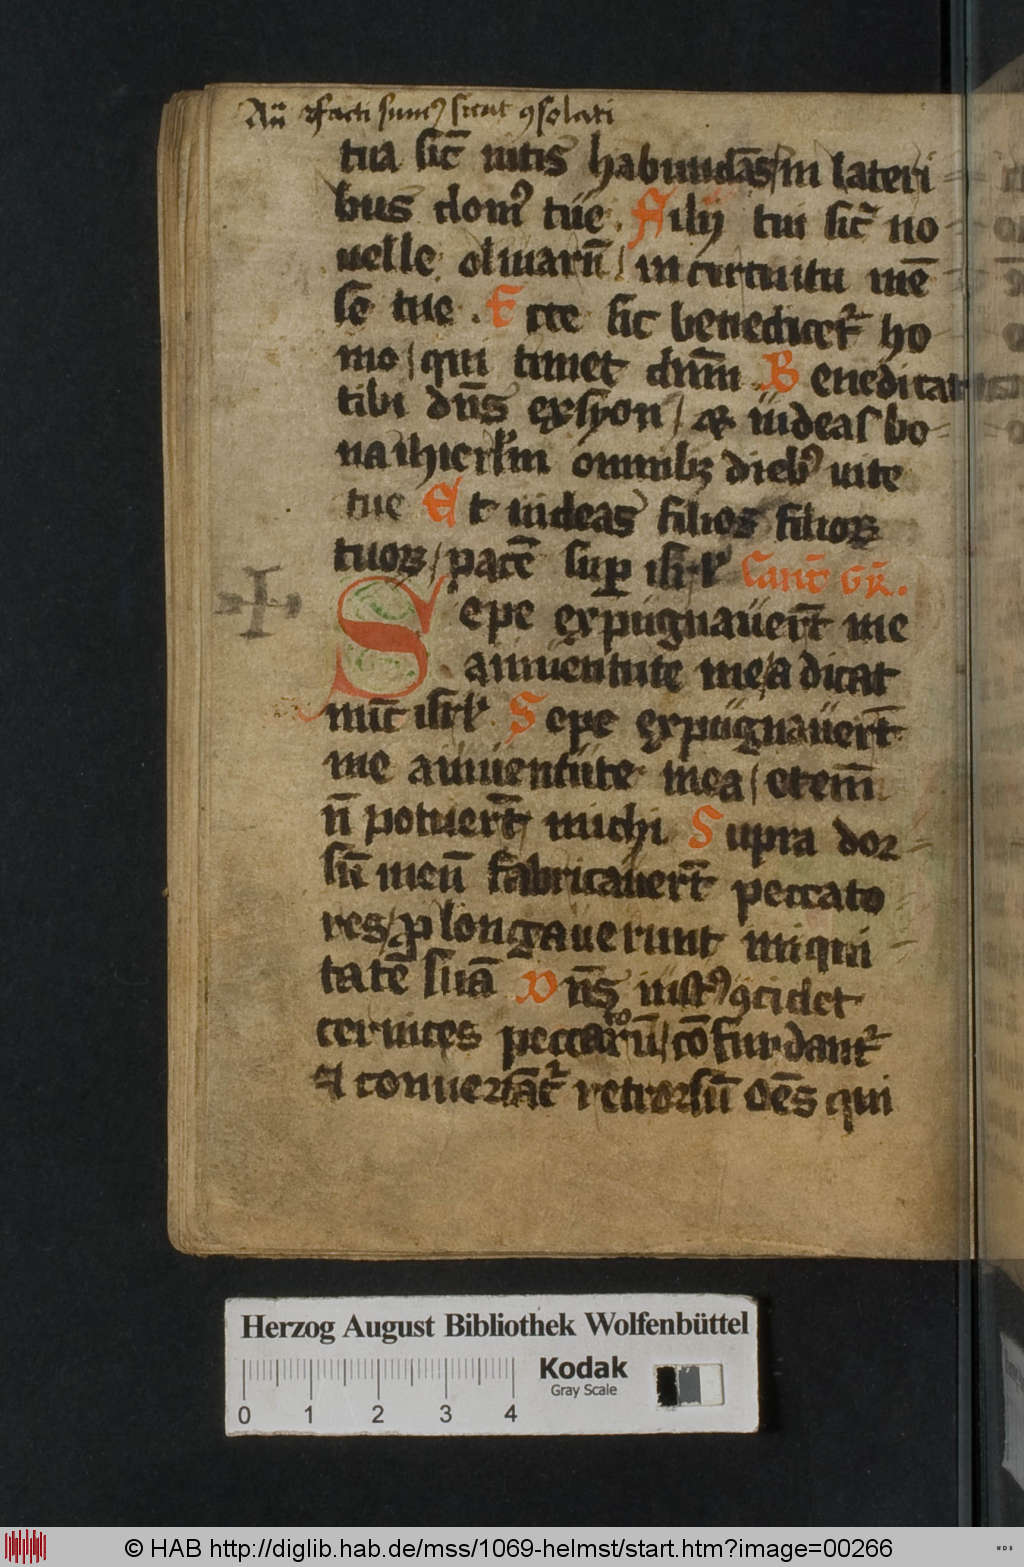 Añ facti sumꝰ sicut ꝯsolati
tua sic̄ uitis habundās / in lateri
bus domꝰ tue . Filij tui sic̄ no
uelle oliuarū / in circuitu mē
se tue . Ecce sic benedicet᷑ ho
mo / qui timet dn̄m Benedicat
tibi dn̄s exsyon / & uideas bo
na iħierl̄m omnibꝫ diebꝰ uite
tue Et uideas filios filioꝝ
tuoꝝ / pacē suꝑ isrl̄ Cant̄ Gr̄.
Sepe expugnauer̄t me
a iuuentute mea dicat
nūc isrl̄ Sepe expugnauer̄t
me a iuuentute mea / etem̄
n̄ potuer̄t michi Supra dor
sū meū fabricauer̄t peccato
res / ꝓlongauerunt iniqui
tatē suā Dn̄s iustꝰ ꝯcidet
ceruices peccatorū / cōfundant᷑
& conuertāt᷑ retrorsū oēs qui
Herzog August Bibliothek Wolfenbüttel
Kodak
Gray Scale
0 1 2 3 4
© HAB http://diglib.hab.de/mss/1069-helmst/start.htm?image=00266